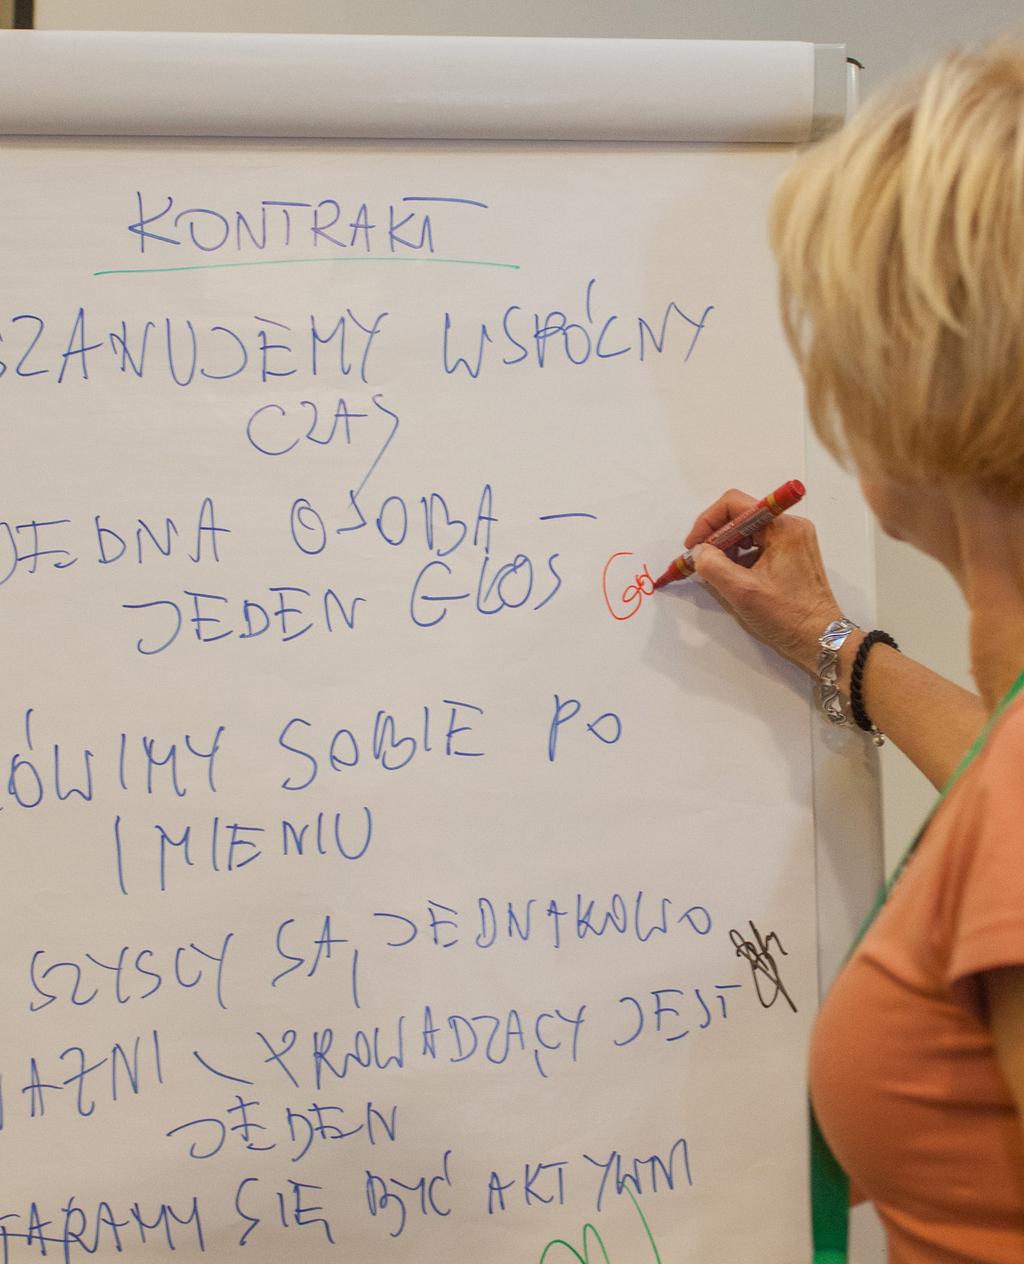 KONTRAKT
SZANUJEMY WSPÓLNY
CZAS
JEDNA OSOBA —
JEDEN GŁOS
ÓWIMY SOBIE PO
IMIENIU
SZYSCY SĄ JEDNAKOWO
AŻNI \ PROWADZĄCY JEST
JEDEN
TARAMY SIĘ BYĆ AKTYWNI